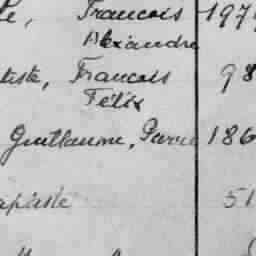 le, Francois 197
Alexandre
tiste, Francois 98
Félix
Guillaume, Pierre 186
aptiste 51